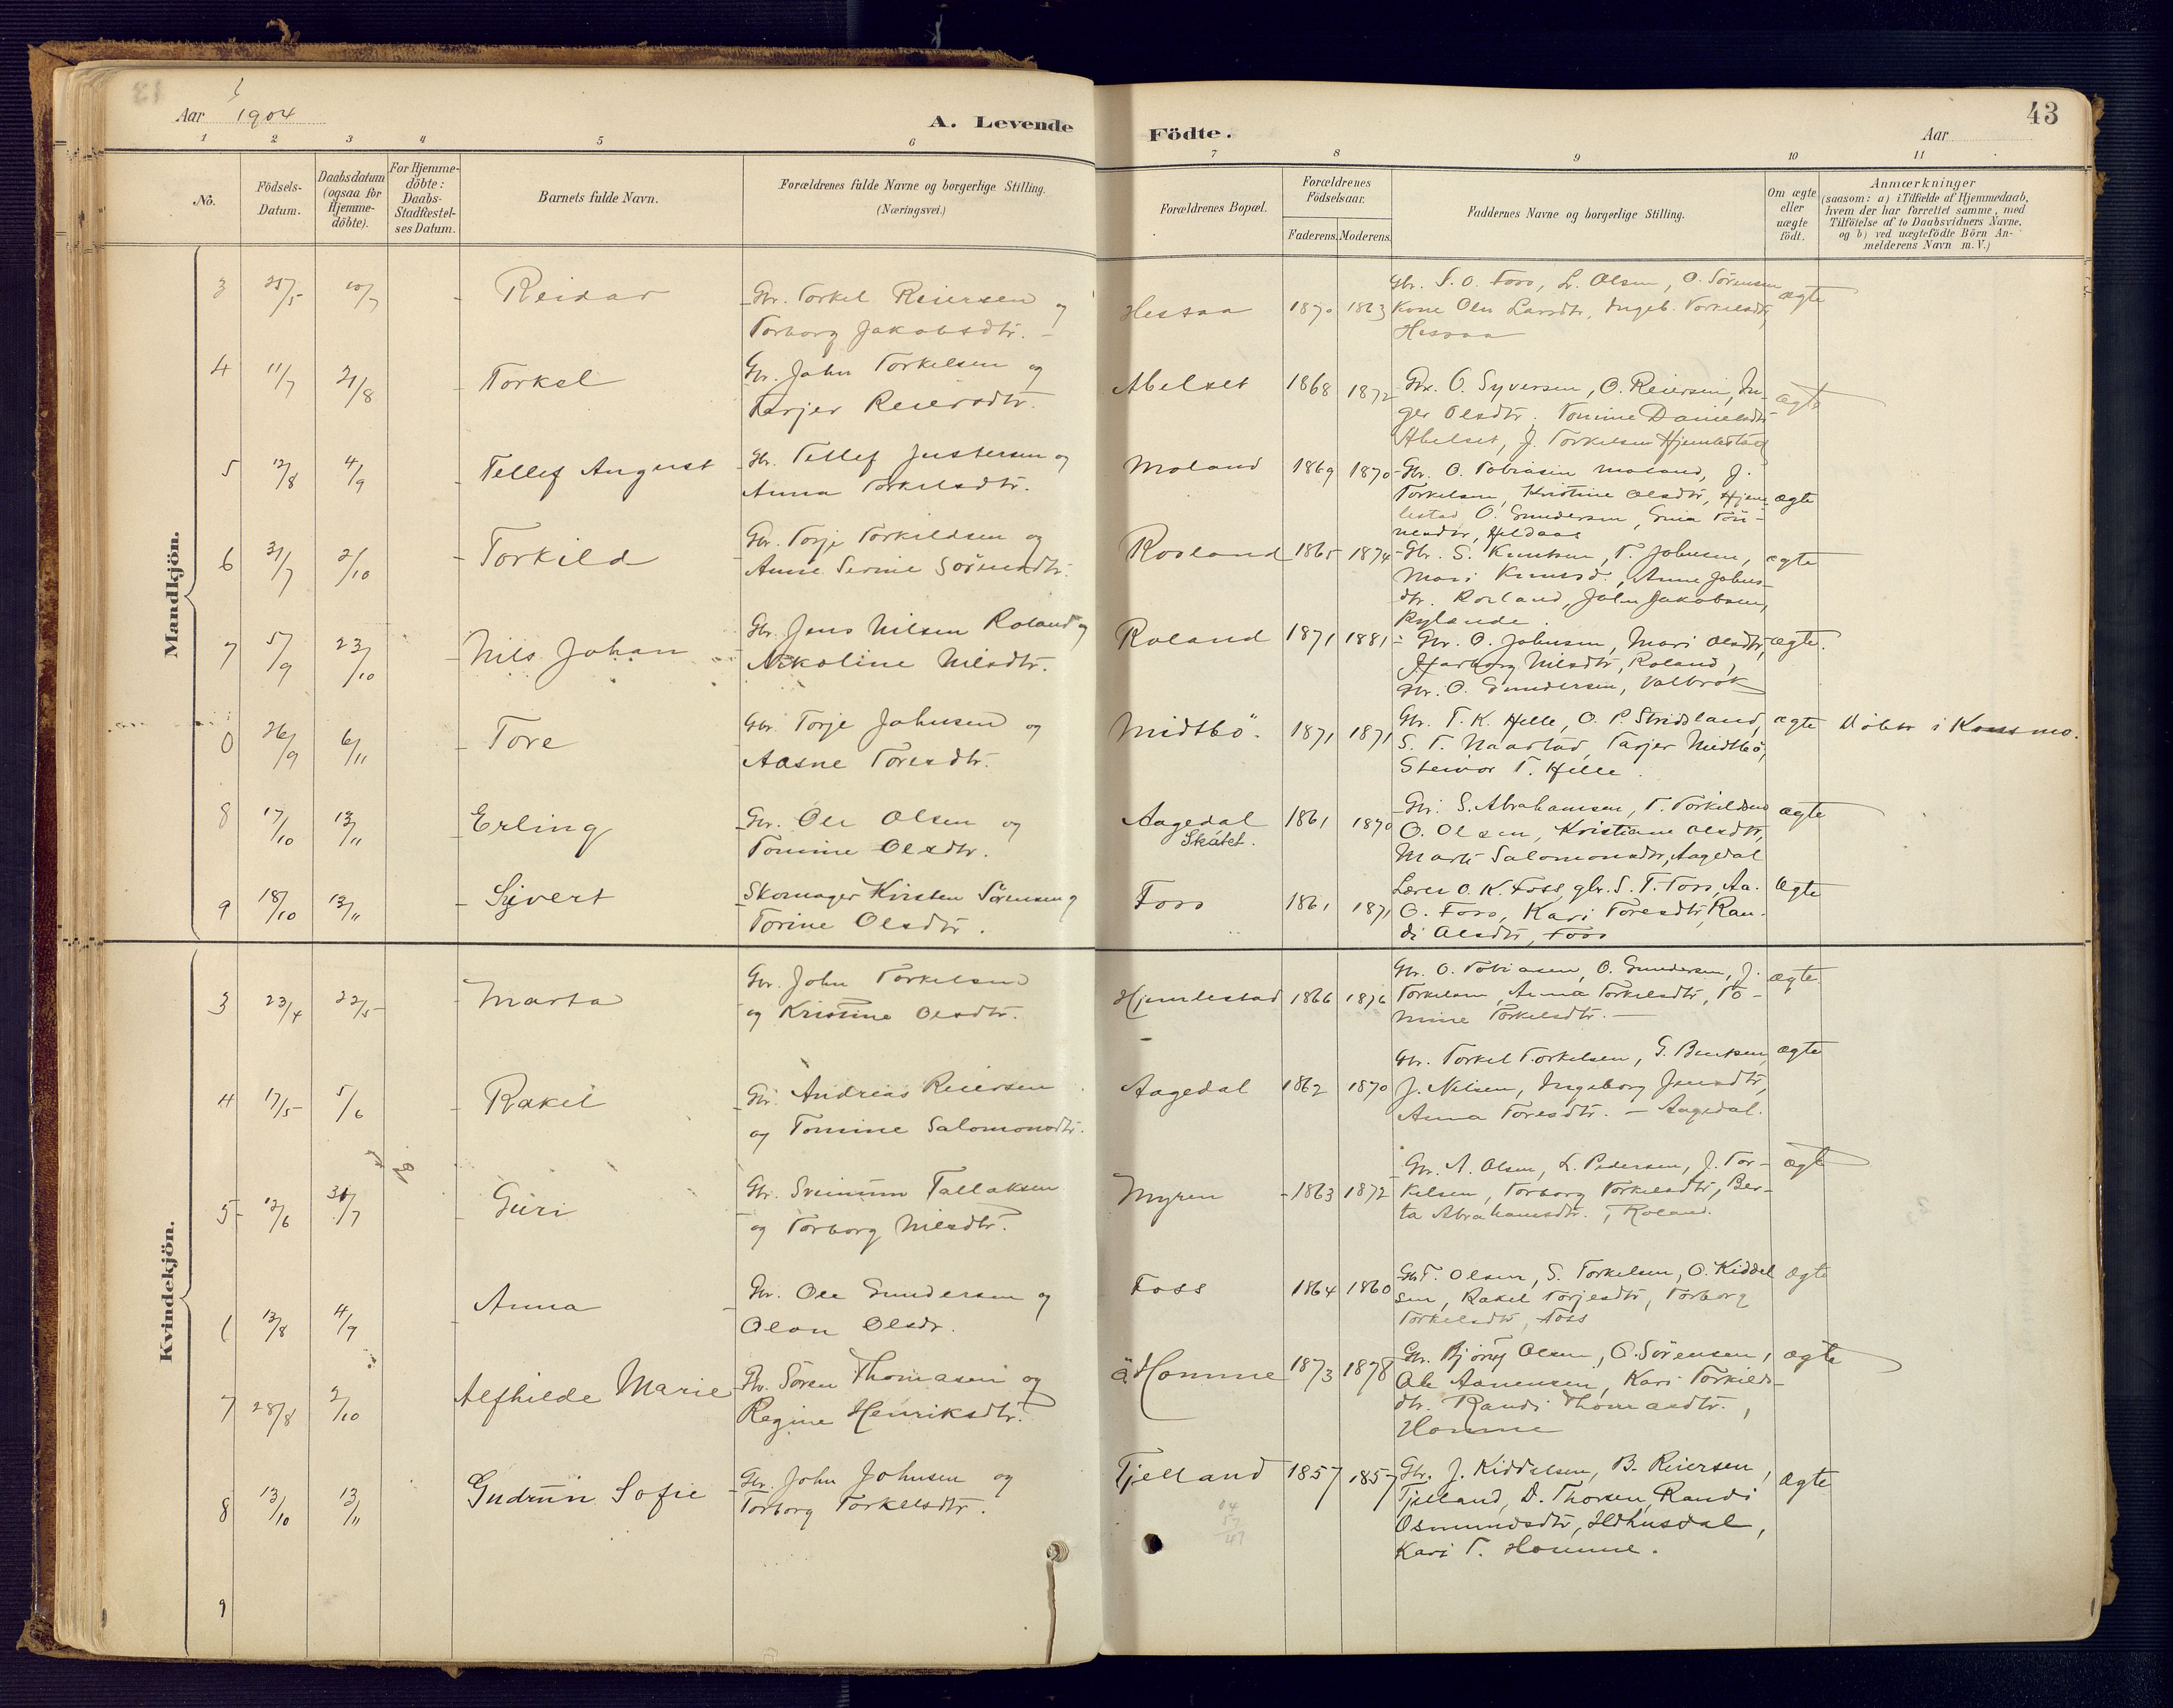 43
Aar 1904
A. Levende
Födte.
Aar
1 2 3 4 5 6 7 8 9 10 11
No.
Födsels-
Datum.
Daabsdatum
(ogsaa for
Hjemme-
döbte).
For Hjemme-
döbte:
Daabs-
Stadfæstel-
ses Datum.
Barnets fulde Navn.
Forældrenes fulde Navne og borgerlige Stilling.
(Næringsvei.)
Forældrenes Bopæl.
Forældrenes
Födselsaar.
Faderens. Moderens.
Faddernes Navne og borgerlige Stilling.
Om ægte
eller
uægte
födt.
Anmærkninger
(saasom: a) i Tilfælde af Hjemmedaab,
hvem der har forrettet samme, med
Tilföielse af to Daabsvidners Navne,
og b) ved uægtefödte Börn An-
melderens Navn m. V.)
Mandkjön.
3 25/5 10/7 Reidar
Gbr. Torkel Reiersen og
Torborg Jakobsdtr.
Hessaa 1870 1863
Gbr. T. O. Foss, L. Olsen, O. Sörensen
Kone Olu Larsdtr, Ingeb. Torkelsdtr,
Hessaa
ægte
4 11/7 21/8 Torkel
Gbr. John Torkelsen og
Tarjer Reiersdtr.
Abelset 1868 1872
Gbr. O. Syversen, O. Reiersen, In-
ger Olsdtr. Tomine Danielsdtr
Abelset, J. Torkelsen Hjemlestad
ægte
5 12/8 4/9 Tellef August
Gbr. Tellef Justersen og
Anna Torkelsdtr.
Moland 1869 1870
Gbr. O. Tobiasen Moland, J.
Torkelsen, Kristine Olsdtr, Hjem-
lestad O. Gundersen,
ægte
6 31/7 2/10 Torkild
Gbr. Torje Torkildsen og
Anne Serine Sörensdtr.
Rosland 1865 1874
Gbr. S. Knutsen, T. Johnsen,
Mari Knutsd., Anne Johns-
dtr. Rosland, John Jakobsen,
Rylande.
ægte
7 5/9 23/10 Nils Johan
Gbr. Jens Nilsen Roland og
Nikoline Nilsdtr.
Roland 1871 1881
Gbr. O. Johnsen, Mari Olsdtr,
Harborg Nilsdtr, Roland,
gbr. O. Gundersen, Valbrök
ægte.
0 26/9 6/11 Tore
Gbr. Torje Johnsen og
Aasne Toresdtr.
Midtbö. 1871 1871
Gbr. T. K. Helle, O. P. Stridsland,
S. T. Naastad, Tarjer Midtbö,
Steinor T. Helle.
ægte Döbt i Konsmo.
8 17/10 13/11 Erling
Gbr. Ole Olsen og
Tomine Olsdtr.
Aagedal
Skåtet. 1861 1870
Gbr. S. Abrahamsen, T. Torkildsen
O. Olsen, Kristiane Olsdtr,
Marte Salomonsdtr, Aagedal
ægte
9 18/10 13/11 Syvert
Skomager Kristen Sörensen og
Torine Olsdtr.
Foss 1861 1871
Lærer O. K. Foss, gbr. S. T. Foss, Aa.
O. Foss, Kari Toresdtr, Ran-
di Olsdtr, Foss
ægte
Kvindekjön.
3 23/4 22/5 Marta
Gbr. John Torkelsen
og Kristine Olsdtr.
Hjemlestad 1866 1876
Gbr. O. Tobiasen, O. Gundersen, J.
Torkelsen, Anna Torkelsdtr, To-
mine Torkelsdtr.
ægte
4 17/5 5/6 Rakel
Gbr. Andreas Reiersen
og Tomine Salomonsdtr.
Aagedal 1862 1870
Gbr. Torkel Torkelsen, G. Bentsen,
J. Nilsen, Ingeborg Jensdtr,
Anna Toresdtr. - Aagedal.
ægte
5 12/6 31/7 Guri
Gbr. Sveinum Tallaksen
og Torborg Nilsdtr.
Myren 1863 1872
Gbr. A. Olsen, L. Pedersen, J. Tor-
kelsen, Torborg Torkelsdtr, Ber-
ta Abrahamsdtr., Roland.
ægte
6 13/8 4/9 Anna
Gbr. Ole Gundersen og
Olon Olsdr.
Foss 1864 1860
Gbr T. Olsen, S. Torkelsen, O. Kiddel
sen, Rakel Torjesdtr, Torborg
Torkelsdtr, Foss
ægte
7 28/8 2/10 Alfhilde Marie
Gbr. Sören Thomasen og
Regine Henriksdtr.
Homme 1873 1878
Gbr. Björn Olsen, O. Sörensen,
Ole Aanensen, Kari Torkilds-
dtr. Randi Thomasdtr.,
Homme
ægte
8 13/10 13/11 Gudrun Sofie
Gbr. John Johnsen og
Torborg Torkelsdtr.
Tjelland 1857 1857
Gbr. J. Kiddelsen, B. Reiersen,
Tjelland, D. Thorsen, Randi
Osmundsdtr, Ildhusdal,
Kari T. Homme.
ægte
9